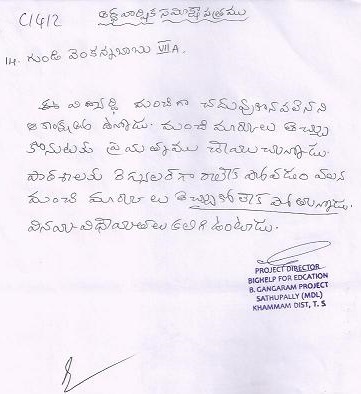 C1412
అర్థవార్షిక సమీక్షా పత్రము
14. గుండి వెంకన్నబాబు VII A.
ఈ విద్యార్థి మంచిగా చదువుకొనవలెనని
ఆకాంక్షతో ఉన్నాడు. మంచి మార్కులు తెచ్చు
కొనుటకు ప్రయత్నము చేయుచున్నాడు.
పాఠశాలకు రెగ్యులర్‌గా రాలేక పోవడం వలన
మంచి మార్కులు తెచ్చుకోలేక పోతున్నాడు.
వినయ విధేయతలు కలిగి ఉంటాడు.
PROJECT DIRECTOR
BIGHELP FOR EDCATION
B. GANGARAM PROJECT
SATHUPALLY (MDL)
KHAMMAM DIST, T. S